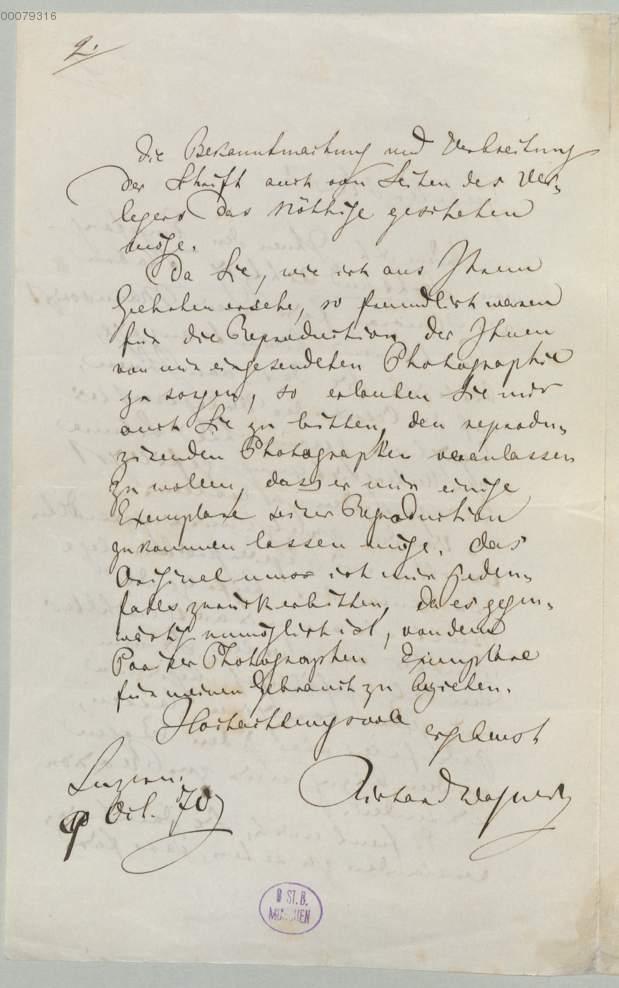 00079316
2.
die Bekanntmachung und Verbreitung
der Schrift auch von Seiten des Ver-
legers das Nöthige geschehen
möge.
Da Sie, wie ich aus Ihrem
Geehrten ersehe, so freundlich waren
für die Reproduction der Ihnen
von mir eingesendeten Photographie
zu sorgen, so erlauben Sie mir
auch Sie zu bitten, den reprodu-
zirenden Photographen veranlassen
zu wollen, dass er mir einige
Exemplare seiner Reproduction
zukommen lassen möge. Das
Original muss ich mir jeden-
falls zurück erbitten, da es gegen-
wärtig unmöglich ist, von dem
Pariser Photographen Exemplare
für meinen Gebrauch zu beziehen.
Hochachtungsvoll
ergebenst
Richard Wagner
Luzern.
9 Oct. 70
B ST. B.
MÜNCHEN